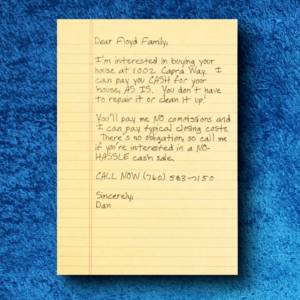 Dear Floyd Family,
I'm interested in buying your
house at 1002 Capra Way. I
can pay you CASH for your
house, AS IS. You don't have
to repair it or clean it up!
You'll pay me NO commissions and
I can pay typical closing costs.
There's no obligation, so call me
if you're interested in a NO-
HASSLE cash sale.
CALL NOW (760) 583-7150
Sincerely,
Dan